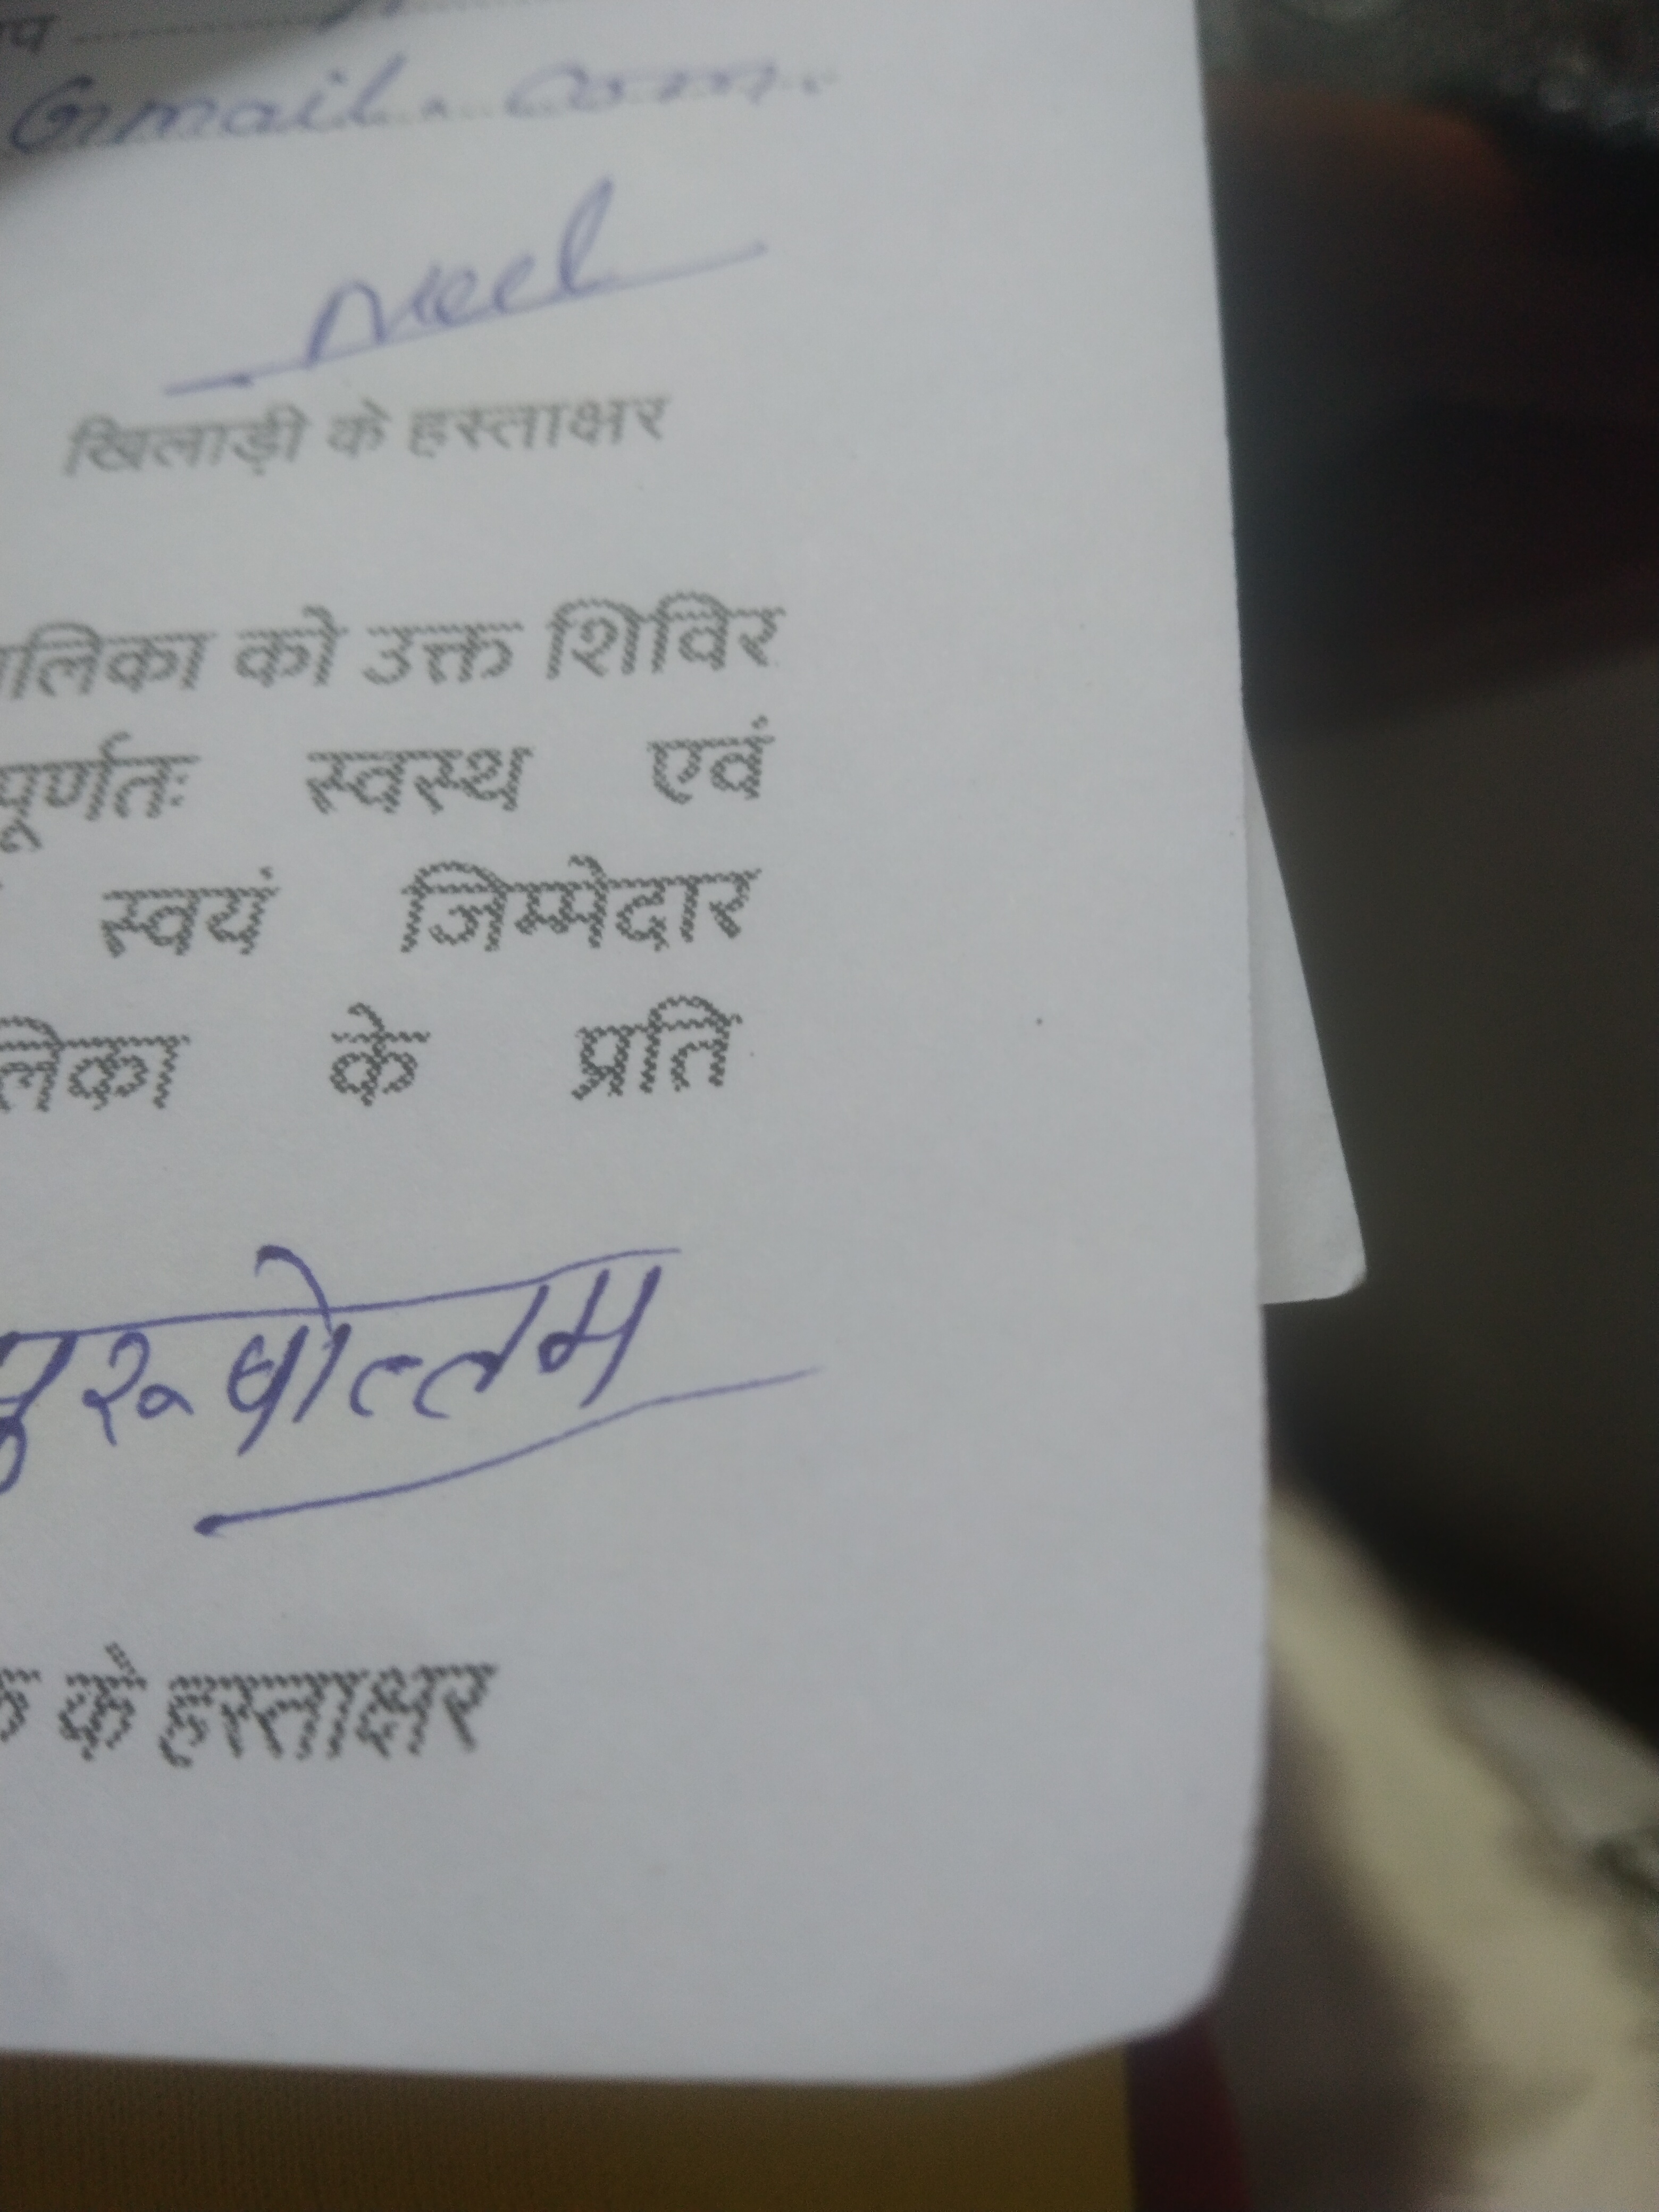 Gmail. com.
Neel
खिलाड़ी के हस्ताक्षर
को उक्त शिविर
पूर्णतः स्वस्थ एवं
स्वयं जिम्मेदार
के प्रति
पुरूषोत्तम
के हस्ताक्षर